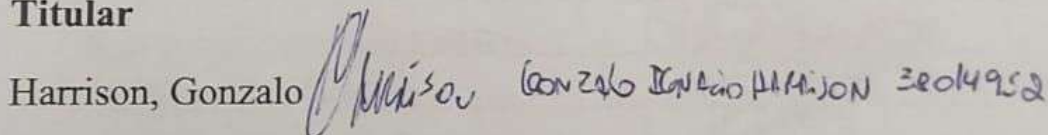 Titular
Harrison, Gonzalo Harrison GONZALO IGNACIO HARRISON 38014952